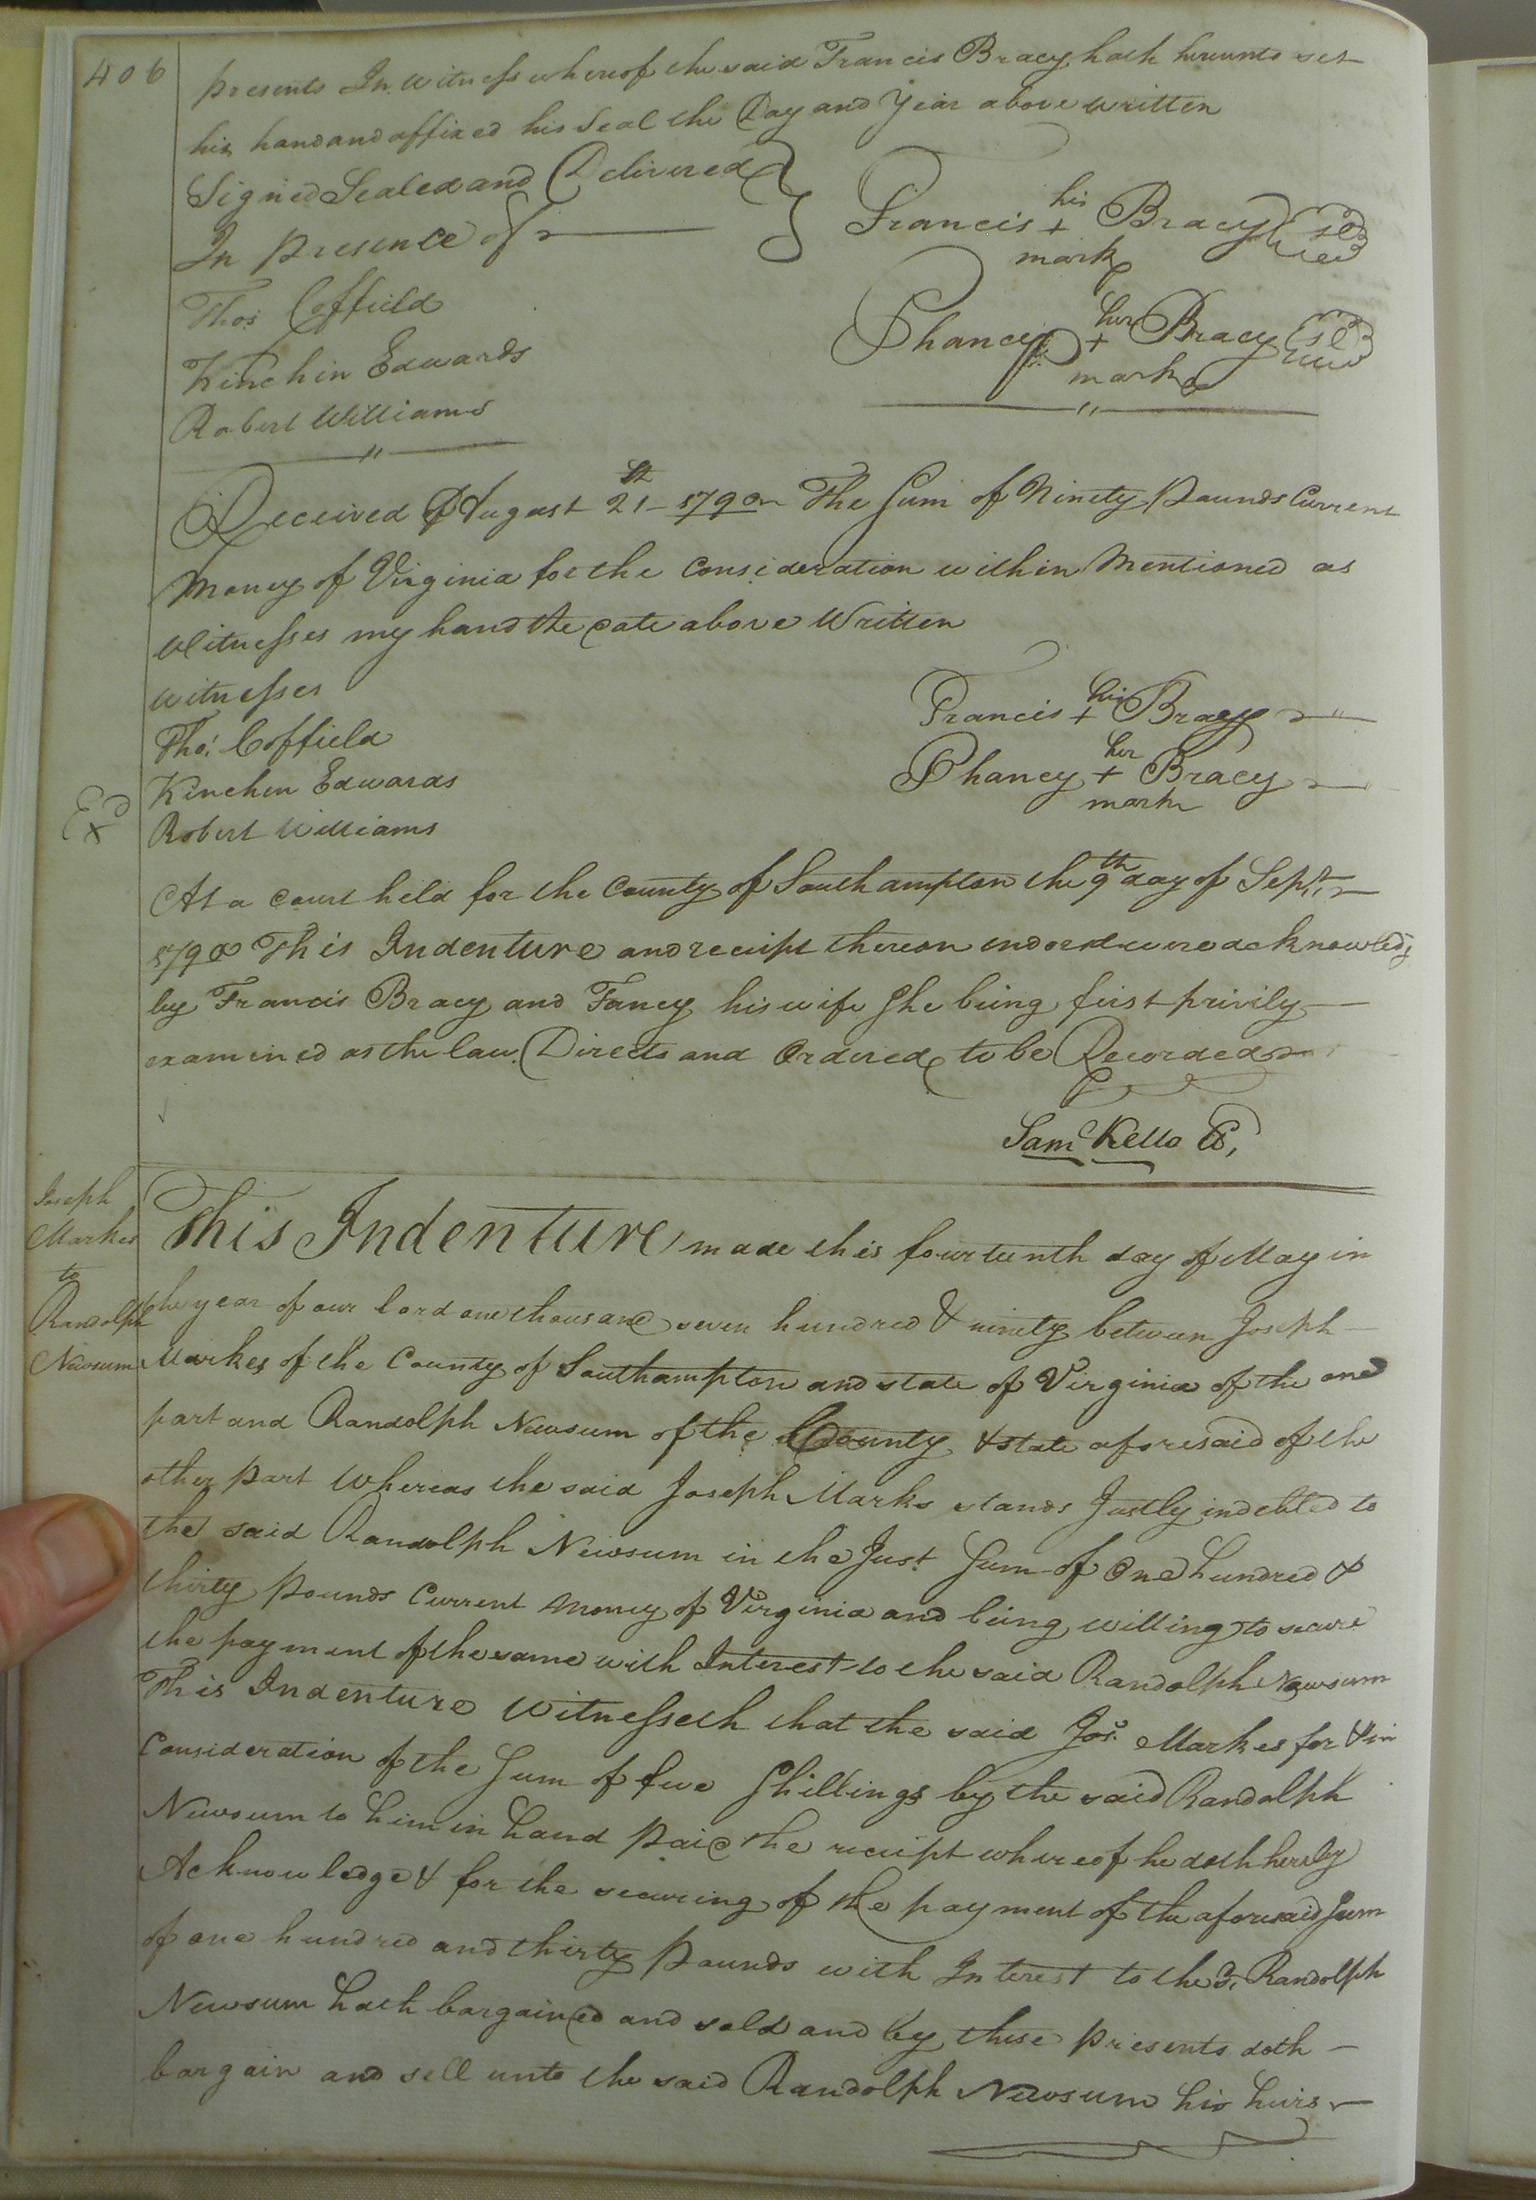 406
presents In witness whereof the said Francis Bracy hath hereunto set
his hand and affixed his Seal the Day and Year above written
Signed Sealed and Delivered }
In presence of
Francis his + mark Bracy Seal
Phaney her + mark Bracy Seal
Thos Coffield
Kinchin Edwards
Robert Williams
Received August 21st 1790 The Sum of Ninety Pounds Current
Money of Virginia for the Consideration within Mentioned as
Witnesses my hand the date above Written
Witnesses
Francis his + Bracy
Tho: Coffield
Phaney her + mark Bracy
Kinchen Edwards
Exd
Robert Williams
At a Court held for the County of Southampton the 9th day of Sept.
1790 This Indenture and receipt thereon endorsd were acknowledg
by Francis Bracy and Faney his wife She being first privily
examined as the law Directs and Ordered to be Recorded
Saml Kello Cl,
Joseph
Markes
to
Randolph
Newsum
This Indenture made this fourteenth day of May in
the year of our lord one thousand seven hundred & ninety between Joseph
Markes of the County of Southampton and state of Virginia of the one
part and Randolph Newsum of the County & state aforesaid of the
other part Whereas the said Joseph Marks stands Justly indebted to
the said Randolph Newsum in the Just Sum of One hundred &
thirty Pounds Current Money of Virginia and being willing to secure
the payment of the same with Interest to the said Randolph Newsum
This Indenture Witnesseth that the said Jos. Markes for & in
Consideration of the Sum of five Shillings by the said Randolph
Newsum to him in hand paid the receipt whereof he doth hereby
Acknowledge & for the securing of the payment of the aforesaid Sum
of one hundred and thirty Pounds with Interest to the sd. Randolph
Newsum hath bargained and sold and by these presents doth
bargain and sell unto the said Randolph Newsum his heirs